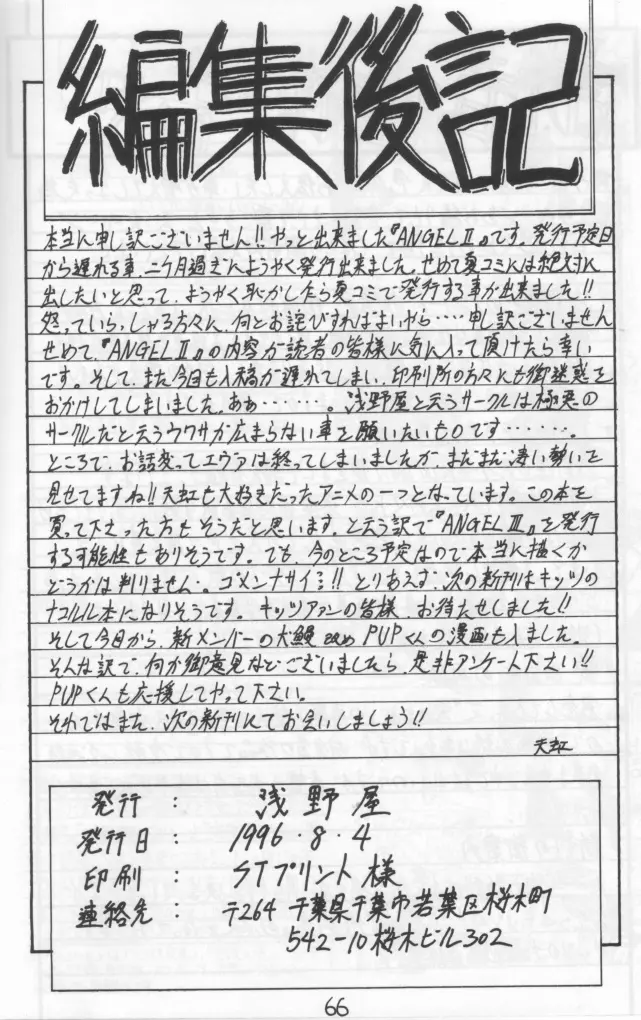 編集後記
本当に申し訳ございません!!やっと出来ました『ANGELⅡ』です。発行予定日
から遅れる事、二ケ月過ぎにようやく発行出来ました。せめて夏コミには絶対に
出したいと思って、ようやく恥かしたら夏コミで発行する事が出来ました!!
怒っていらっしゃる方々に、何とお詫びすればよいやら‥‥申し訳ございません
せめて、『ANGELⅡ』の内容が読者の皆様に気に入って頂けたら幸い
です。そして、また今回も入稿が遅れてしまい、印刷所の方々にも御迷惑を
おかけしてしまいました。ああ………。浅野屋と云うサークルは極悪の
サークルだと云うウワサが広まらない事を願いたいものです………。
ところで、お話変ってエヴァは終ってしまいましたが、まだまだ凄い勢いを
見せてますね!!天虹も大好きだったアニメの一つとなっています。この本を
買って下さった方もそうだと思います。と云う訳で『ANGELⅢ』を発行
する可能性もありそうです。でも、今のところ予定なので本当に描くか
どうかは判りません。ゴメンナサイ!!とりあえず、次の新刊はキッツの
ナコルル本になりそうです。キッツファンの皆様、お待たせしました!!
そして今回から、新メンバーの犬鰻 改め PUPくんの漫画も入ました。
そんな訳で、何か御意見などございましたら、是非アンケート下さい!!
PUPくんも応援してやって下さい。
それではまた、次の新刊にてお会いしましょう!!
天虹
発行 : 浅野屋
発行日 : 1996・8・4
印刷 : STプリント様
連絡先 : 〒264 千葉県千葉市若葉区桜木町
542-10 桜木ビル302
66